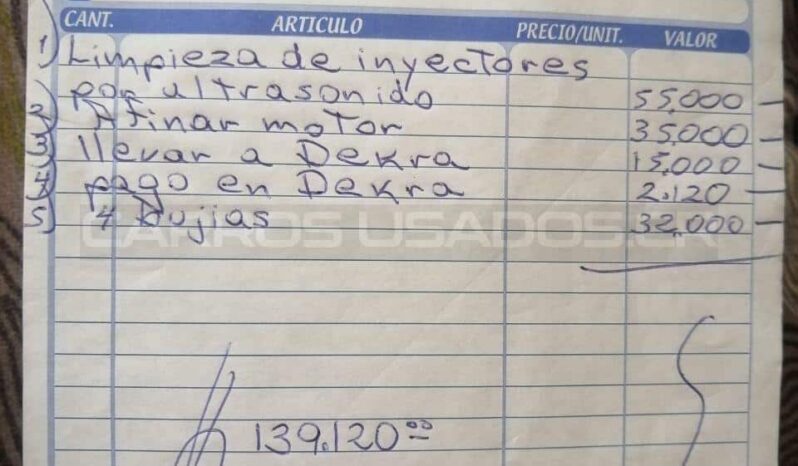 CANT. ARTICULO PRECIO/UNIT. VALOR
1) Limpieza de inyectores
por ultrasonido 55,000 —
2) Afinar motor 35,000 —
3) llevar a Dekra 15,000 —
4) pago en Dekra 2.120 —
5) 4 Bujias 32,000 —
CARROS USADOS.CR
139.120⁰⁰